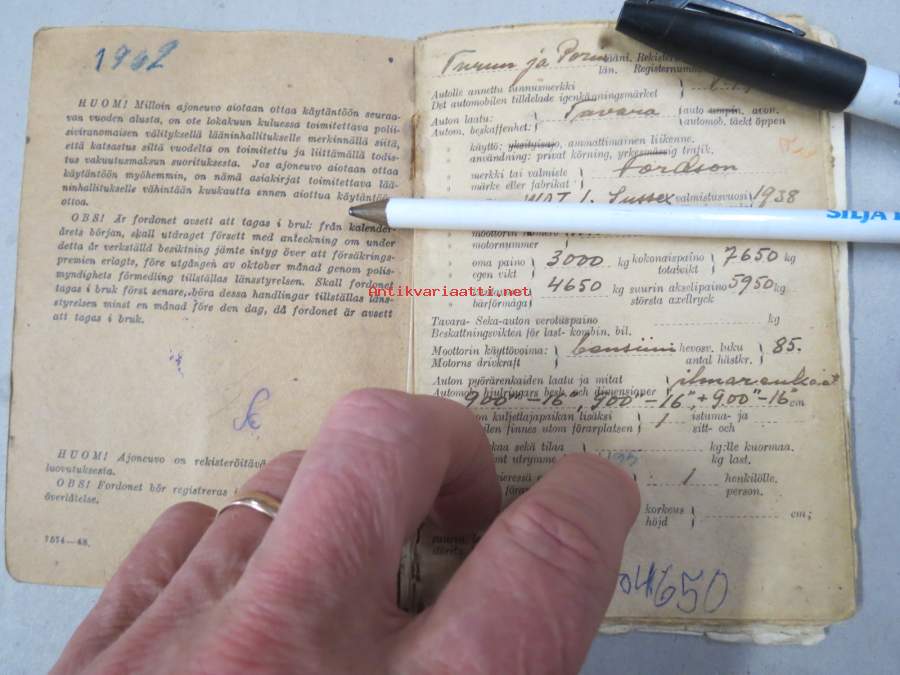 1962
HUOM! Milloin ajoneuvo aiotaan ottaa käytäntöön seuraa-
van vuoden alusta, on ote lokakuun kuluessa toimitettava polii-
siviranomaisen välityksellä lääninhallitukselle merkinnällä siitä,
että katsastus siltä vuodelta on toimitettu ja liittämällä todis-
tus vakuutusmaksun suorituksesta. Jos ajoneuvo aiotaan ottaa
käytäntöön myöhemmin, on nämä asiakirjat toimitettava lää-
ninhallitukselle vähintään kuukautta ennen aiottua käytäntöön
ottoa.
OBS! Är fordonet avsett att tagas i bruk från kalender-
årets början, skall utdraget försett med anteckning om under
detta år verkställd besiktning jämte intyg över att försäkrings-
premien erlagts, före utgången av oktober månad genom polis-
myndighets förmedling tillställas länsstyrelsen. Skall fordonet
tagas i bruk först senare, böra dessa handlingar tillställas läns-
styrelsen minst en månad före den dag, då fordonet är avsett
att tagas i bruk.
HUOM! Ajoneuvo on rekisteröitävä
luovutuksesta.
OBS! Fordonet bör registreras
överlåtelse.
7574—48.
Turun ja Porin lääni. Rekisteri
län. Registernum
Autolle annettu tunnusmerkki
Det automobilen tilldelade igenkänningsmärket
Auton laatu: Tavara auto umpin. avon.
Autom. beskaffenhet: automob. täckt öppen
käyttö: yksityisajo, ammattimainen liikenne.
användning: privat körning, yrkesmässig trafik.
merkki tai valmiste Fordson
märke eller fabrikat
WOT 1. Sussex valmistusvuosi 1938
SILJA
moottorin numero
motornummer
oma paino 3000 kg kokonaispaino 7650 kg
egen vikt totalvikt
4650 kg suurin akselipaino 5950 kg
bärförmåga största axeltryck
Antikvariaatti.net
Tavara- Seka-auton verotuspaino kg
Beskattningsvikten för last- kombin. bil.
Moottorin käyttövoima: bensiini hevosv. luku 85.
Motorns drivkraft antal hästkr.
Auton pyöränrenkaiden laatu ja mitat ilmarenkaat
Automob. hjulringars besk. och dimensioner
9.00"-16", 9.00"-16", + 9.00"-16" cm
on kuljettajapaikan lisäksi 1 istuma- ja
bilen finnes utom förarplatsen sitt- och
kaa sekä tilaa kg:lle kuormaa.
mt utrymme kg last.
1 henkilölle.
person.
korkeus cm;
höjd
4650